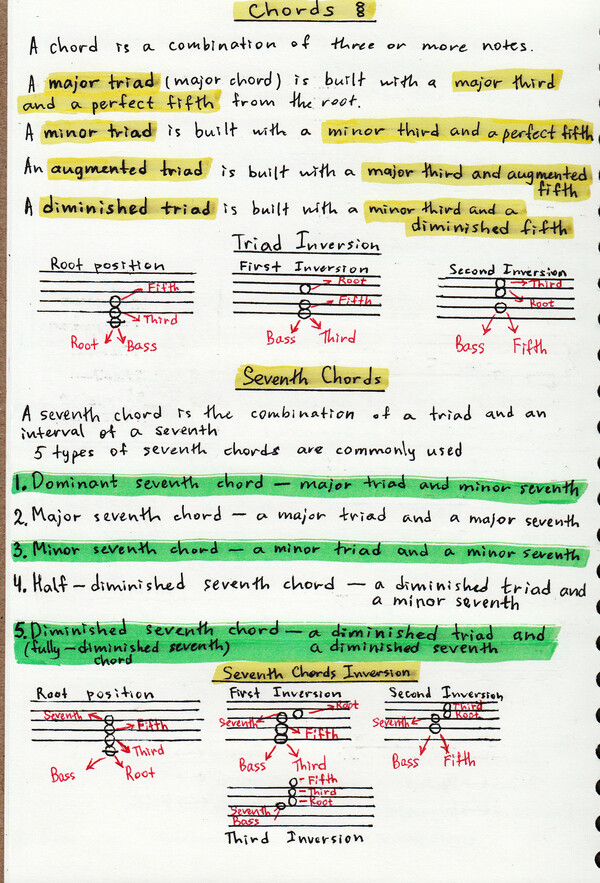 Chords 8
A chord is a combination of three or more notes.
A major triad (major chord) is built with a major third
and a perfect fifth from the root.
A minor triad is built with a minor third and a perfect fifth
An augmented triad is built with a major third and augmented
fifth
A diminished triad is built with a minor third and a
diminished fifth
Triad Inversion
Root position
Fifth
Third
Root Bass
First Inversion
Root
Fifth
Bass Third
Second Inversion
Third
Root
Bass Fifth
Seventh Chords
A seventh chord is the combination of a triad and an
interval of a seventh
5 types of seventh chords are commonly used
1. Dominant seventh chord – major triad and minor seventh
2. Major seventh chord – a major triad and a major seventh
3. Minor seventh chord – a minor triad and a minor seventh
4. Half – diminished seventh chord – a diminished triad and
a minor seventh
5. Diminished seventh chord – a diminished triad and
(fully – diminished seventh) a diminished seventh
chord
Seventh Chords Inversion
Root position
Seventh
Fifth
Third
Bass Root
First Inversion
Root
Seventh
Fifth
Bass Third
Second Inversion
Third
Root
Seventh
Bass Fifth
Fifth
Third
Root
Seventh
Bass
Third Inversion